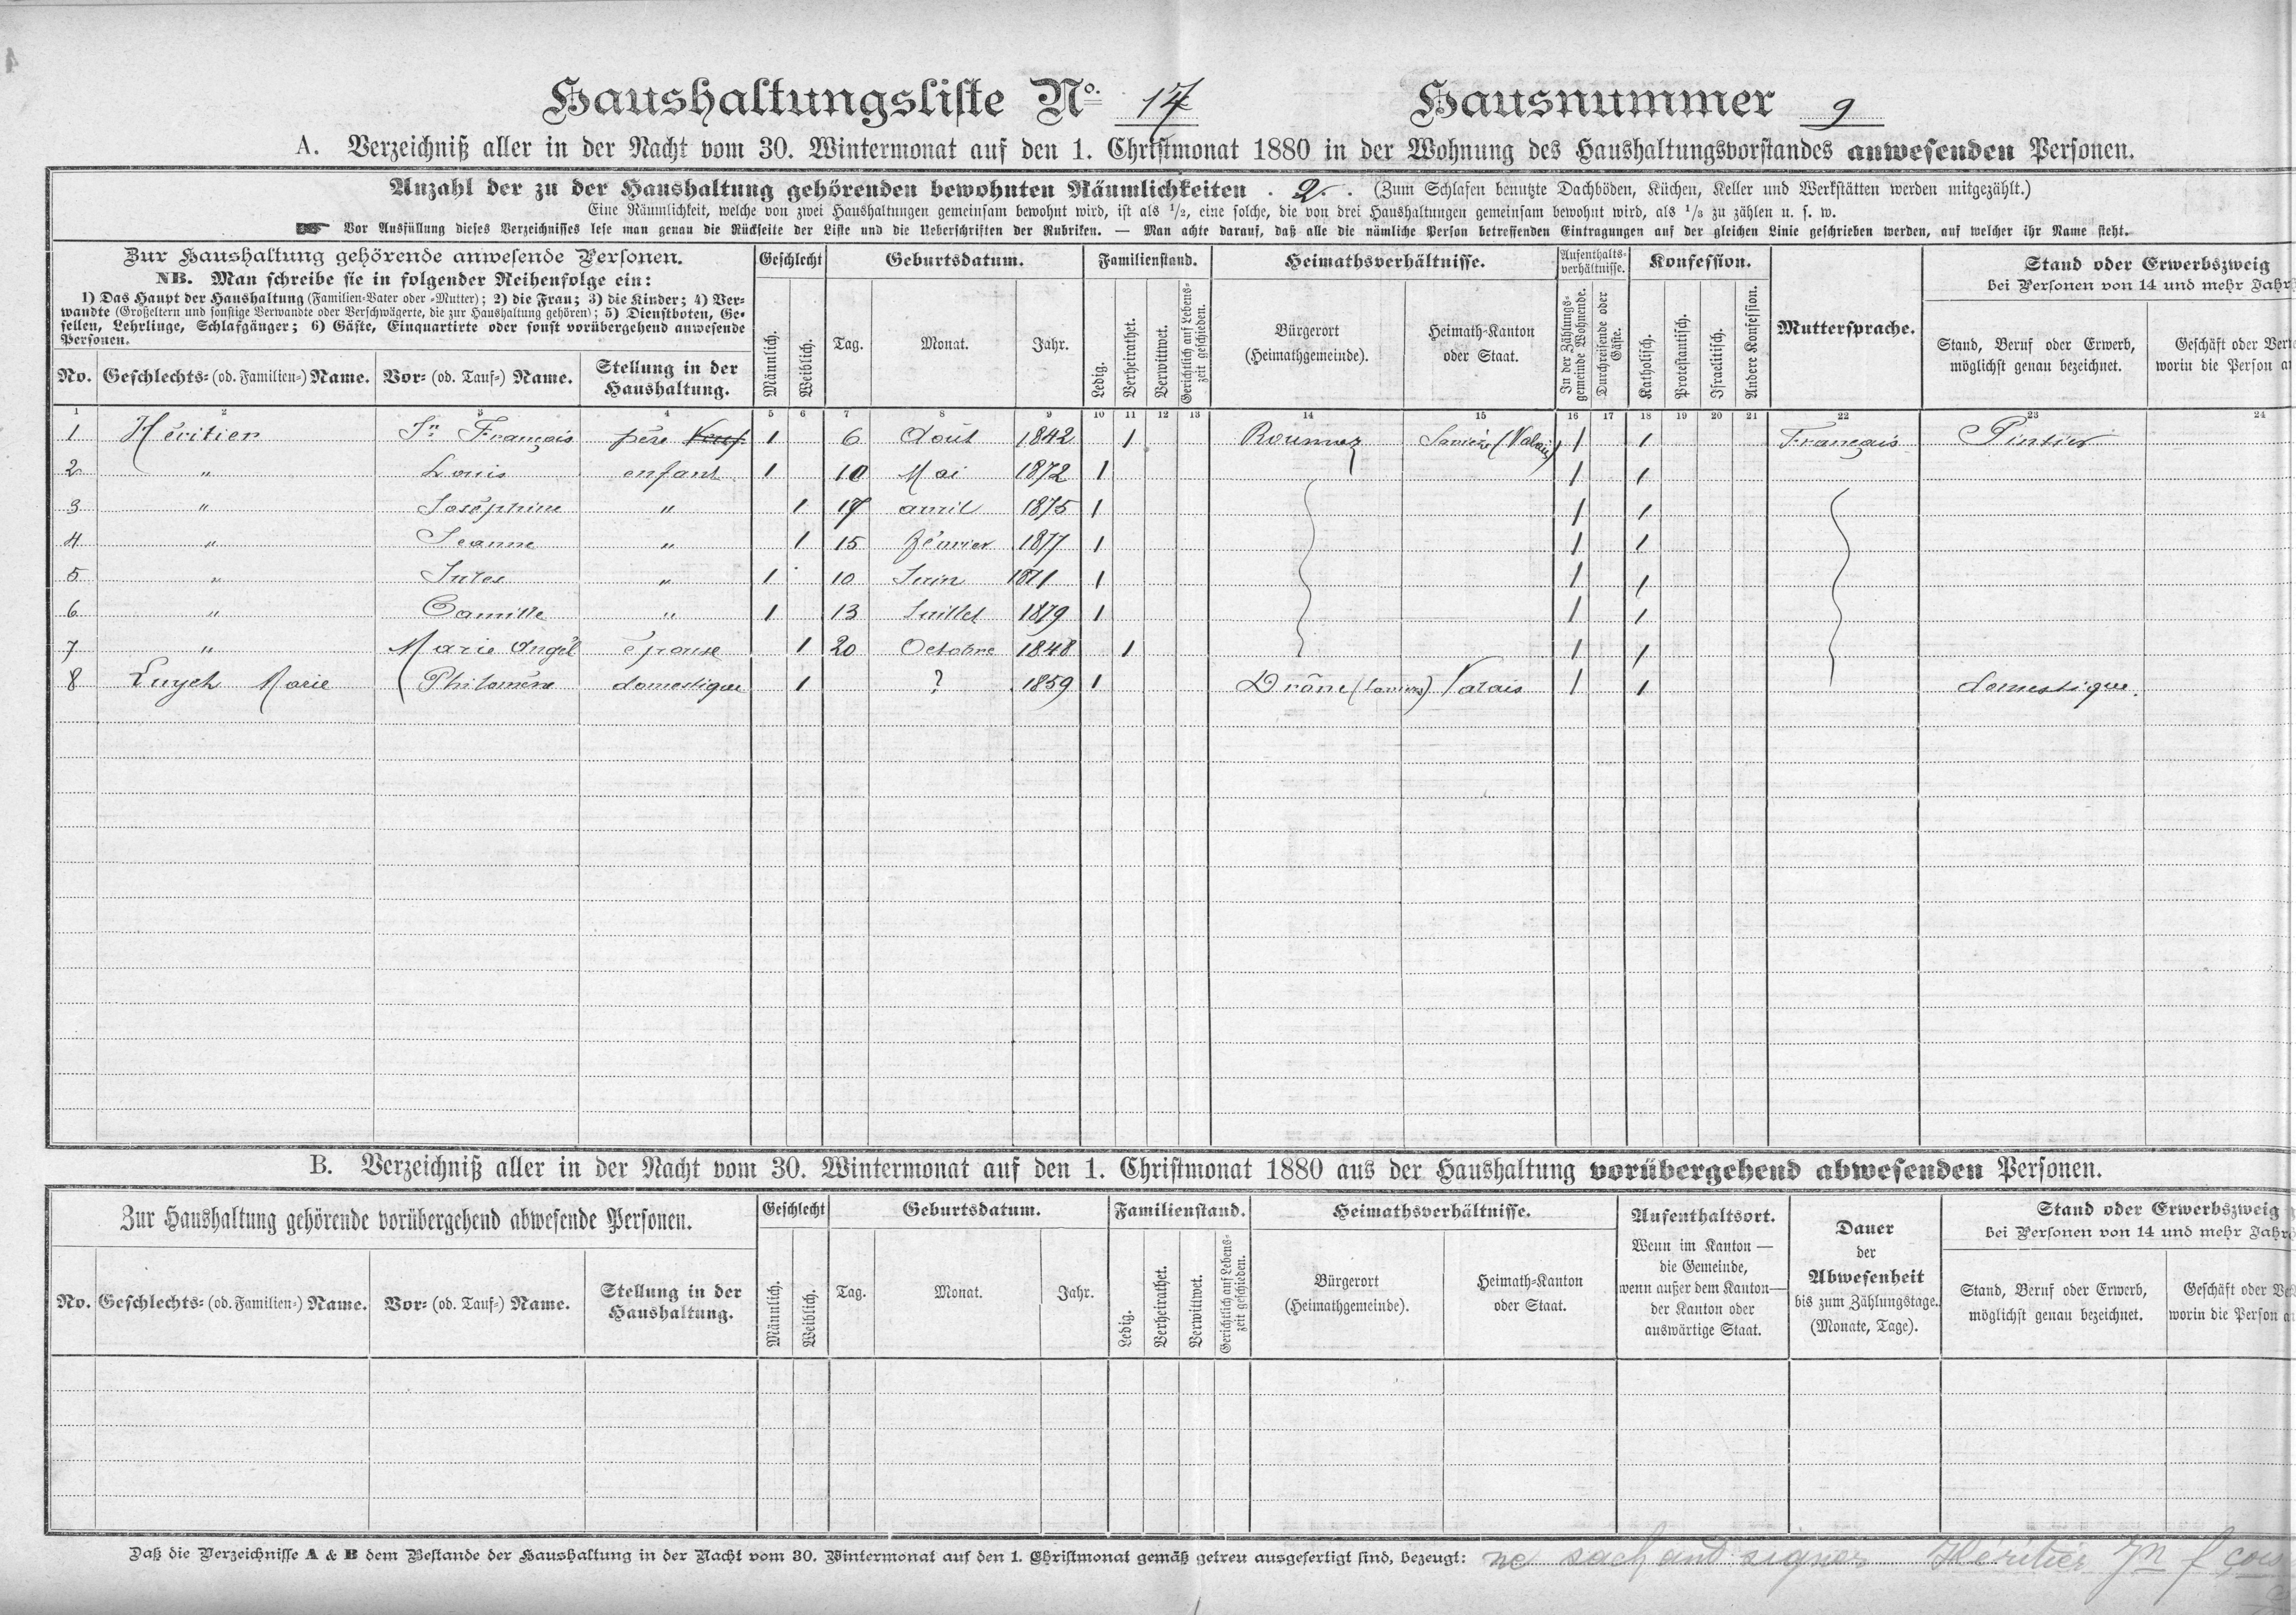 Haushaltungsliste No. 17 Hausnummer 9
A. Verzeichniß aller in der Nacht vom 30. Wintermonat auf den 1. Christmonat 1880 in der Wohnung des Haushaltungsvorstandes anwesenden Personen.
Anzahl der zu der Haushaltung gehörenden bewohnten Räumlichkeiten . 2. . (Zum Schlafen benutzte Dachböden, Küchen, Keller und Werkstätten werden mitgezählt.)
Eine Räumlichkeit, welche von zwei Haushaltungen gemeinsam bewohnt wird, ist als 1/2, eine solche, die von drei Haushaltungen gemeinsam bewohnt wird, als 1/3 zu zählen u. s. w.
☛ Vor Ausfüllung dieses Verzeichnisses lese man genau die Rückseite der Liste und die Ueberschriften der Rubriken. — Man achte darauf, daß alle die nämliche Person betreffenden Eintragungen auf der gleichen Linie geschrieben werden, auf welcher ihr Name steht.
Zur Haushaltung gehörende anwesende Personen.
NB. Man schreibe sie in folgender Reihenfolge ein:
1) Das Haupt der Haushaltung (Familien-Vater oder -Mutter); 2) die Frau; 3) die Kinder; 4) Ver-
wandte (Großeltern und sonstige Verwandte oder Verschwägerte, die zur Haushaltung gehören); 5) Dienstboten, Ge-
sellen, Lehrlinge, Schlafgänger; 6) Gäste, Einquartirte oder sonst vorübergehend anwesende
Personen.
No. Geschlechts- (od. Familien-) Name. Vor- (od. Tauf-) Name. Stellung in der
Haushaltung.
Geschlecht
Männlich. Weiblich.
Geburtsdatum.
Tag. Monat. Jahr.
Familienstand.
Ledig. Verheirathet. Verwittwet. Gerichtlich auf Lebens-
zeit geschieden.
Heimathsverhältnisse.
Bürgerort
(Heimathgemeinde).
Heimath-Kanton
oder Staat.
Aufenthalts-
verhältnisse.
In der Zählungs-
gemeinde Wohnende.
Durchreisende oder
Gäste.
Konfession.
Katholisch. Protestantisch. Israelitisch. Andere Konfession.
Muttersprache.
Stand oder Erwerbszweig
bei Personen von 14 und mehr Jahr
Stand, Beruf oder Erwerb,
möglichst genau bezeichnet.
Geschäft oder Ver
worin die Person a
1 2 3 4 5 6 7 8 9 10 11 12 13 14 15 16 17 18 19 20 21 22 23 24
1 Héritier Jn François père Veuf 1 6 Août 1842 1 Roumaz Savièze (Valais) 1 1 Français Pintier
2 " Louis enfant 1 10 Mai 1872 1 1 1
3 " Joséphine " 1 17 avril 1875 1 1 1
4 " Jeanne " 1 15 février 1877 1 1 1
5 " Jules " 1 10 Juin 1871 1 1 1
6 " Camille " 1 13 Juillet 1879 1 1 1
7 " Marie Angél épouse 1 20 Octobre 1848 1 1 1
8 Luych Marie Philomène domestique 1 ? 1859 1 Drône Valais 1 1 domestique.
B. Verzeichniß aller in der Nacht vom 30. Wintermonat auf den 1. Christmonat 1880 aus der Haushaltung vorübergehend abwesenden Personen.
Zur Haushaltung gehörende vorübergehend abwesende Personen.
No. Geschlechts- (od. Familien-) Name. Vor- (od. Tauf-) Name. Stellung in der
Haushaltung.
Geschlecht
Männlich. Weiblich.
Geburtsdatum.
Tag. Monat. Jahr.
Familienstand.
Ledig. Verheirathet. Verwittwet. Gerichtlich auf Lebens-
zeit geschieden.
Heimathsverhältnisse.
Bürgerort
(Heimathgemeinde).
Heimath-Kanton
oder Staat.
Aufenthaltsort.
Wenn im Kanton —
die Gemeinde,
wenn außer dem Kanton—
der Kanton oder
auswärtige Staat.
Dauer
der
Abwesenheit
bis zum Zählungstage.
(Monate, Tage).
Stand oder Erwerbszweig
bei Personen von 14 und mehr Jahr
Stand, Beruf oder Erwerb,
möglichst genau bezeichnet.
Geschäft oder Ve
worin die Person a
Daß die Verzeichnisse A & B dem Bestande der Haushaltung in der Nacht vom 30. Wintermonat auf den 1. Christmonat gemäß getreu ausgefertigt sind, bezeugt: ne sachant signer Héritier Jn fçois